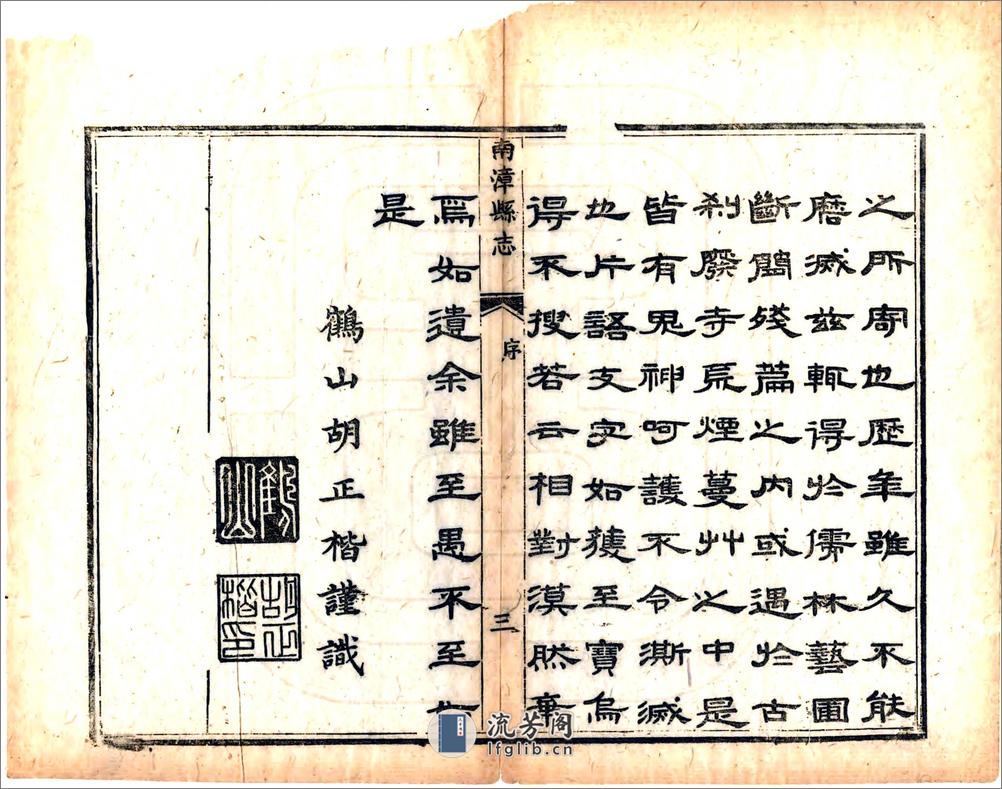 之所寄也歷年雖久不能
磨滅茲輒得於儒林藝圃
斷簡殘篇之內或遇於古
剎廢寺荒煙蔓艸之中是
皆有鬼神呵護不令澌滅
也片語文字如獲至寶烏
得不搜若云相對漠然棄
南漳縣志
序
三
焉如遺余雖至愚不至
是
鶴山胡正楷謹識
鶴山
胡正楷印
流芳阁
lfglib.cn